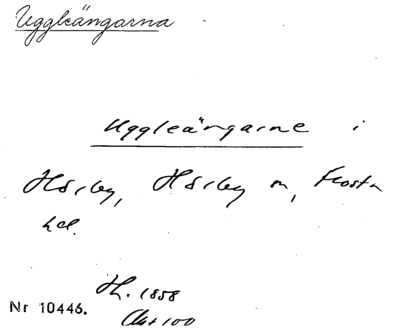 Uggleängarna
Uggleängarne i
Hörby, Hörby sn, Frosta
hd.
H. 1858
Nr 10446. Akt 100